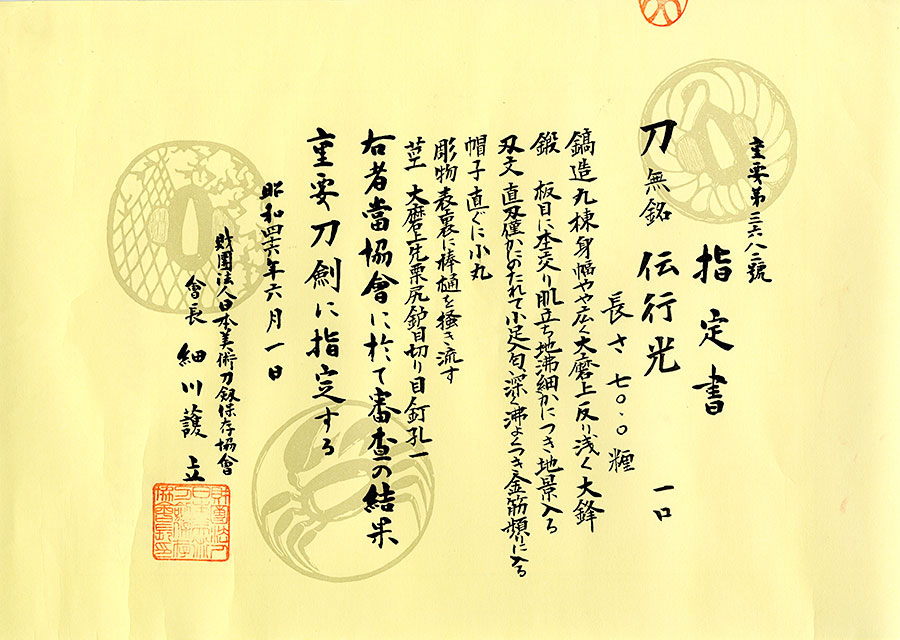 重要第三六八三號
指定書
刀 無銘 伝行光 一口
長さ 七〇.〇糎
鎬造丸棟身幅やや広く大磨上反り浅く大鋒
鍛 板目に杢交り肌立ち地沸細かにつき地景入る
刃文 直刃僅かにのたれて小足入匂深く沸よくつき金筋頻に入る
帽子 直ぐに小丸
彫物 表裏に棒樋を掻き流す
茎 大磨上先栗尻鑢目切り目釘孔一
右者當協會に於て審査の結果
重要刀剣に指定する
昭和四六年六月一日
財團法人日本美術刀剱保存協會
會長 細川護立